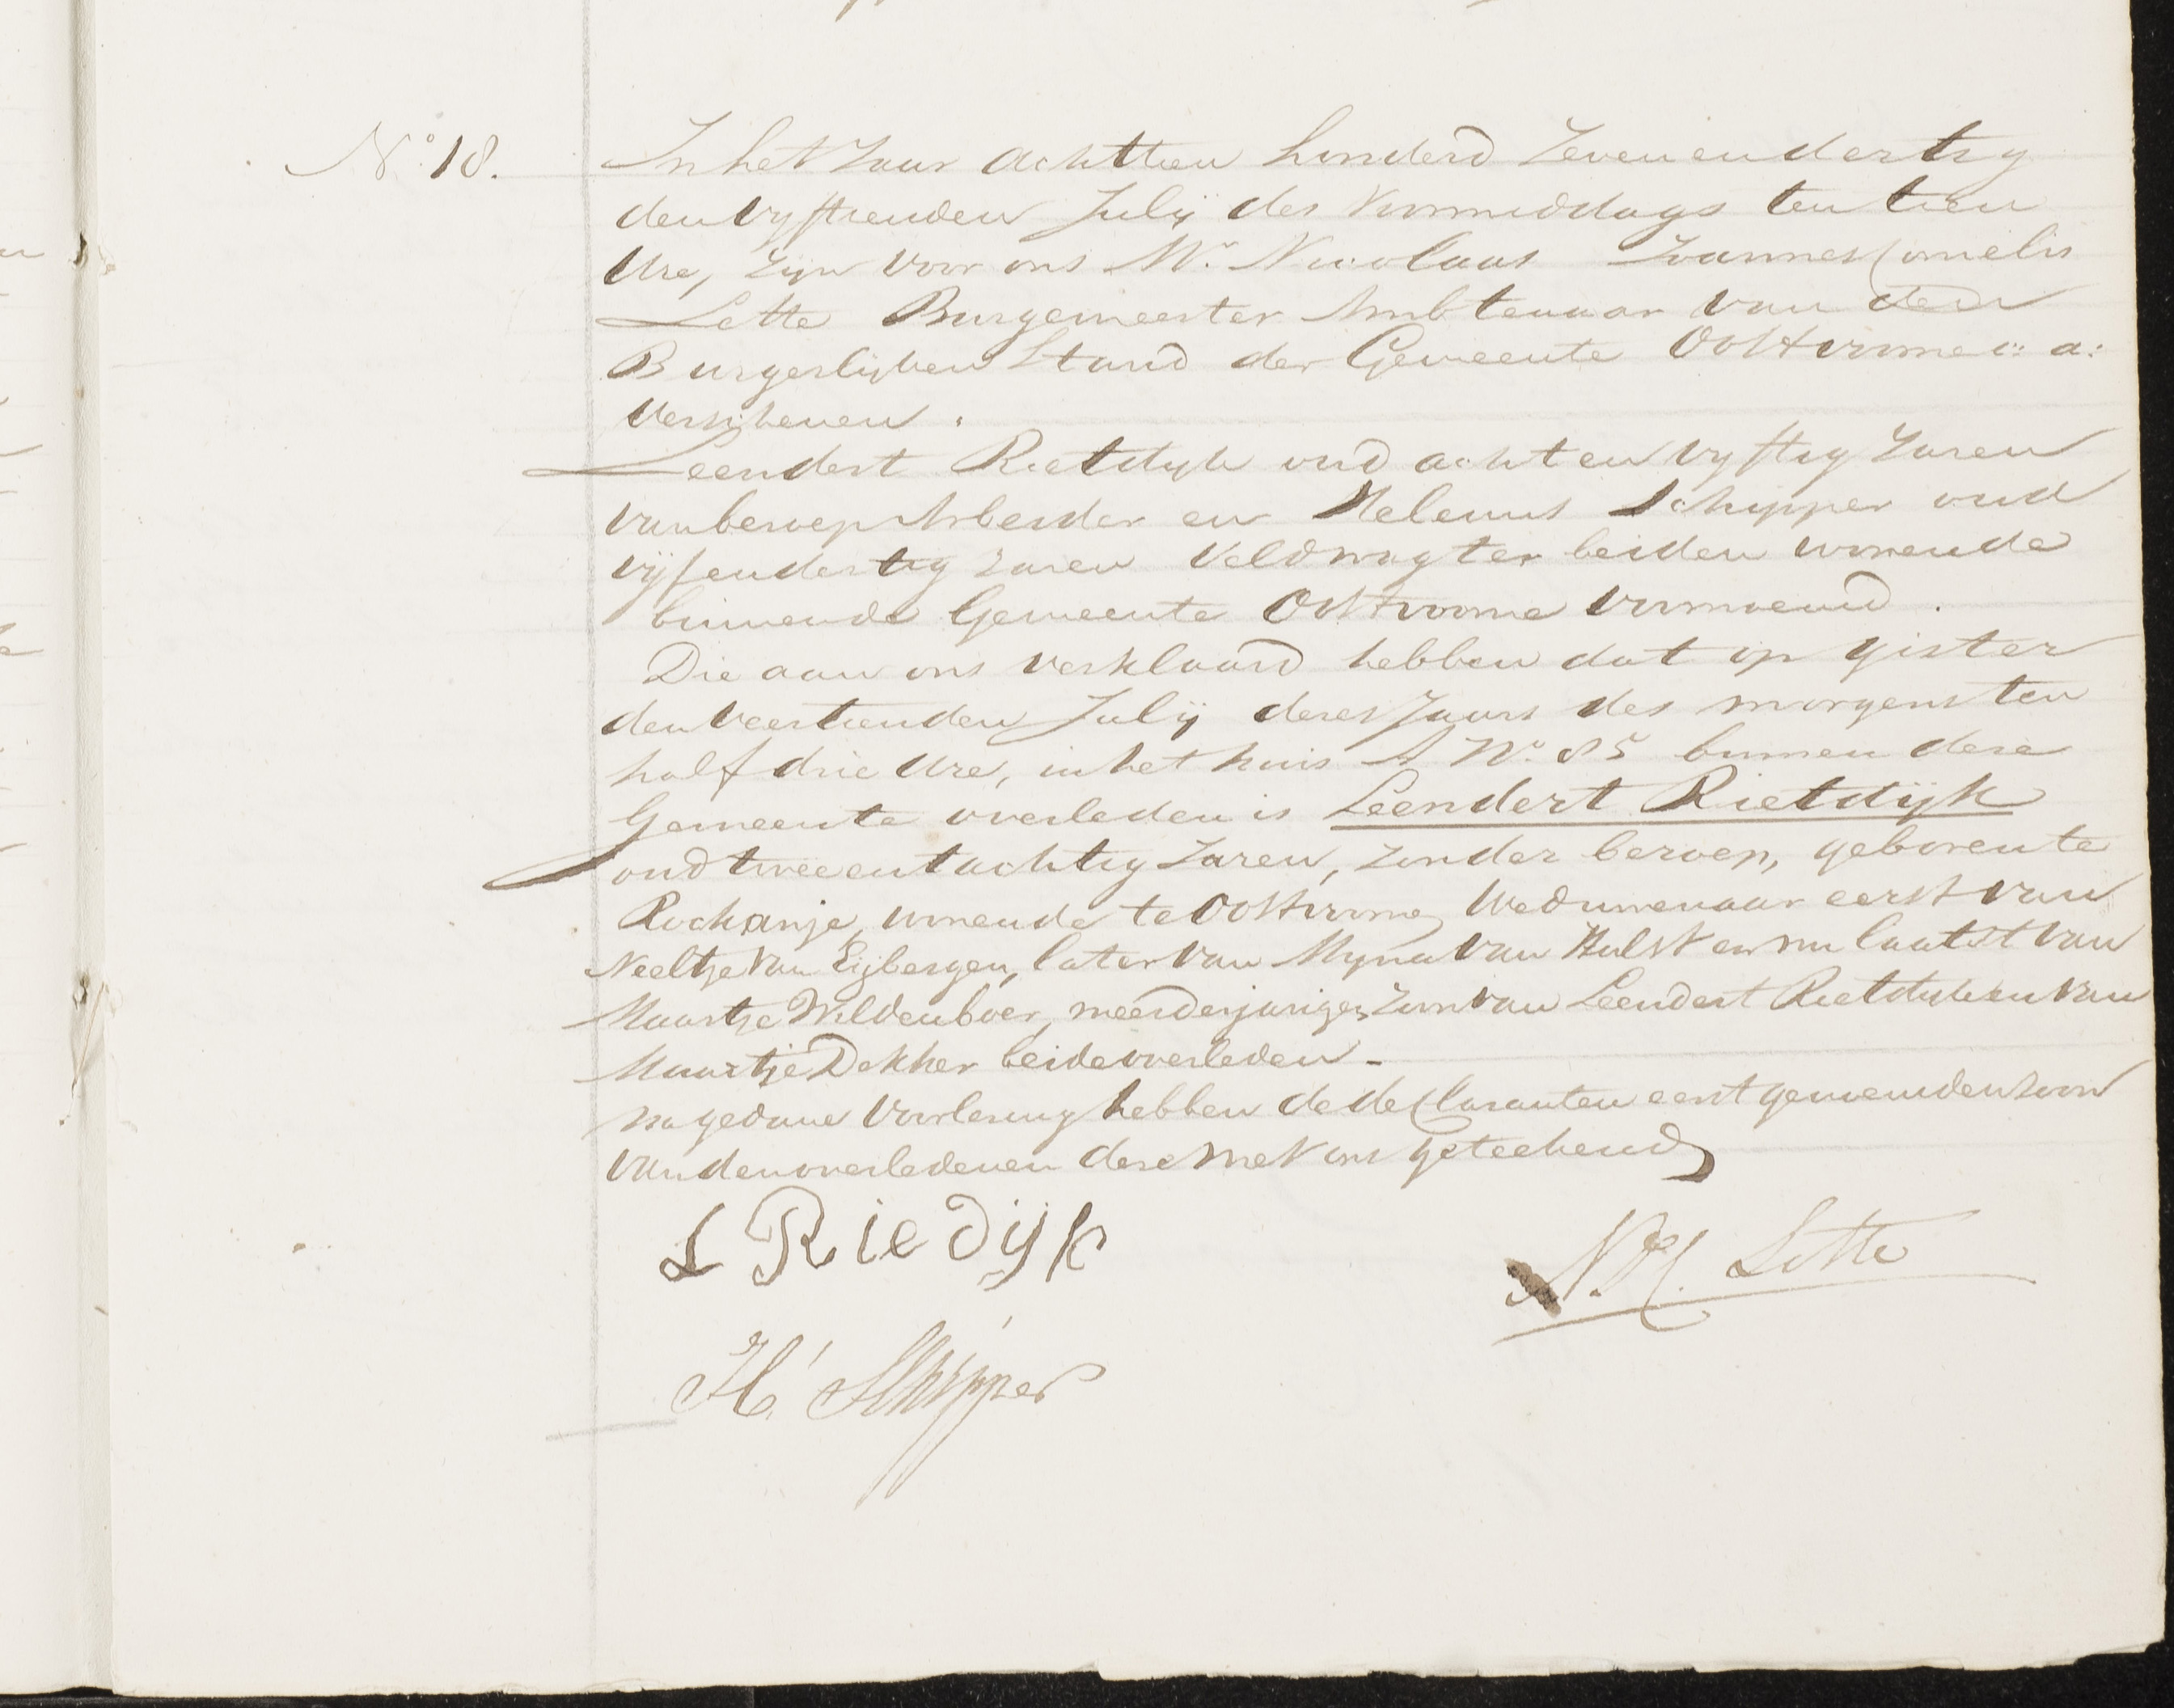 No. 18.
In het Jaar Achttien honderd Zevenendertig
den vyftienden July des voormiddags ten tien
Ure, zijn voor ons Mr. Nicolaas Joannes Cornelis
Lette Burgemeester Ambtenaar van den
Burgerlijken Stand der Gemeente Oostvoorne c: a:
Verschenen.
Leendert Rietdyk oud acht en vyftig Jaren
van beroep Arbeider en Helenus Schipper oud
vijfendertig Jaren Veldwagter beiden wonende
binnen de Gemeente Oostvoorne voornoemd.
Die aan ons verklaard hebben dat op gister
den veertienden July dezes Jaars des morgens ten
half drie Ure, in het huis A No. 85 binnen deze
Gemeente overleden is Leendert Rietdijk
oud twee en tachtig Jaren, zonder beroep, geboren te
Rockanje, wonende te Oostvoorne, Weduwenaar eerst van
Neeltje van Eijbergen, later van Myna van Hulst en nu laatst van
Maartje Wildenboer, meerderjarige Zoon van Leendert Rietdyk en van
Maartje Dekker beide overleden -
na gedane voorlezing hebben de declaranten eerstgenoemden zoon
van den overledenen deze met ons geteekend
L Riedijk
N.J.C. Lette
H. Schipper